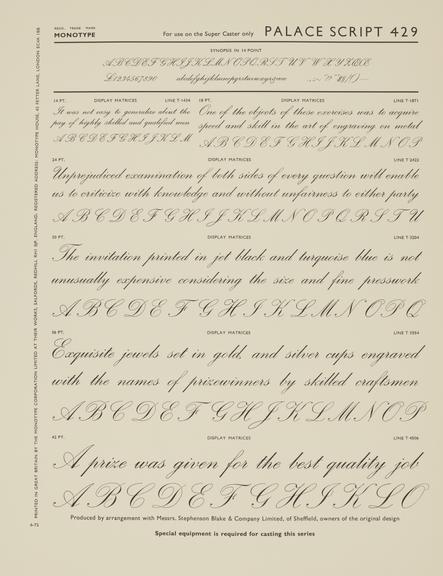 REGD. TRADE MARK
MONOTYPE
For use on the Super Caster only
PALACE SCRIPT 429
SYNOPSIS IN 14 POINT
ABCDEFGHIJKLMNOPQRSTUVWXYZ&Œ
£1234567890 abcdefghijklmnopqrstuvwxyzæœ
14 PT. DISPLAY MATRICES LINE T·1434
It was not easy to generalize about the
pay of highly skilled and qualified men
ABCDEFGHIJKLM
18 PT. DISPLAY MATRICES LINE T·1871
One of the objects of these exercises was to acquire
speed and skill in the art of engraving on metal
ABCDEFGHIJKLMNOP
24 PT. DISPLAY MATRICES LINE T·2422
Unprejudiced examination of both sides of every question will enable
us to criticize with knowledge and without unfairness to either party
ABCDEFGHIJKLMNOPQRSTU
30 PT. DISPLAY MATRICES LINE T·3204
The invitation printed in jet black and turquoise blue is not
unusually expensive considering the size and fine presswork
ABCDEFGHIJKLMNOPQ
36 PT. DISPLAY MATRICES LINE T·3854
Exquisite jewels set in gold, and silver cups engraved
with the names of prizewinners by skilled craftsmen
ABCDEFGHIJKLMNOP
42 PT. DISPLAY MATRICES LINE T·4506
A prize was given for the best quality job
ABCDEFGHIJKLO
Produced by arrangement with Messrs. Stephenson Blake & Company Limited, of Sheffield, owners of the original design
Special equipment is required for casting this series
PRINTED IN GREAT BRITAIN BY THE MONOTYPE CORPORATION LIMITED AT THEIR WORKS, SALFORDS, REDHILL RH1 5JP, ENGLAND. REGISTERED ADDRESS: MONOTYPE HOUSE, 43 FETTER LANE, LONDON EC4A 1BB